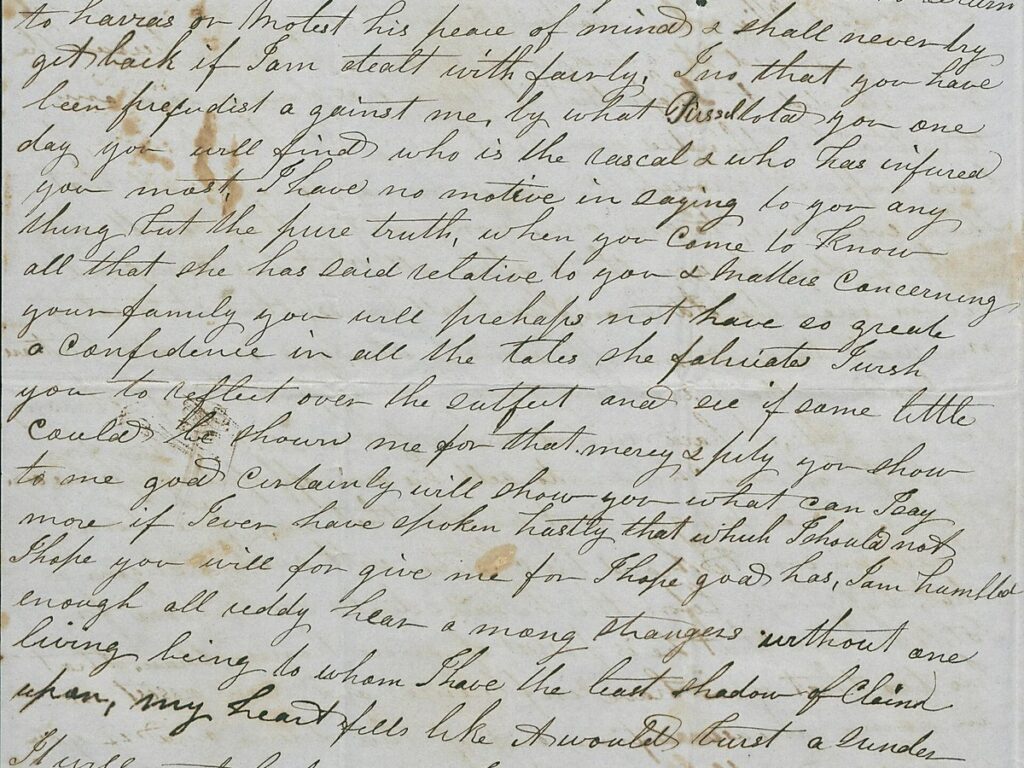 to harras or molest his peace of mind & shall never try
get back if I am dealt with fairly, I no that you have
been prejudist a gainst me, by what told you one
day you will find who is the rascal & who has injured
you most, I have no motive in saying to you any
thing but the pure truth, when you come to know
all that she has said relative to you & matters concerning
your family you will prehaps not have so greate
a confidence in all the tales she fabricates I wish
you to reflect over the subject and see if some little
could be shown me for that mercy & pity you show
to me god certainly will show you what can I say
more if I ever have spoken hastly that which I should not
I hope you will for give me for I hope god has, I am humbled
enough all reddy hear a mong strangers without one
living being to whom I have the least shadow of claim
upon, my heart fells like it would burst a sunder